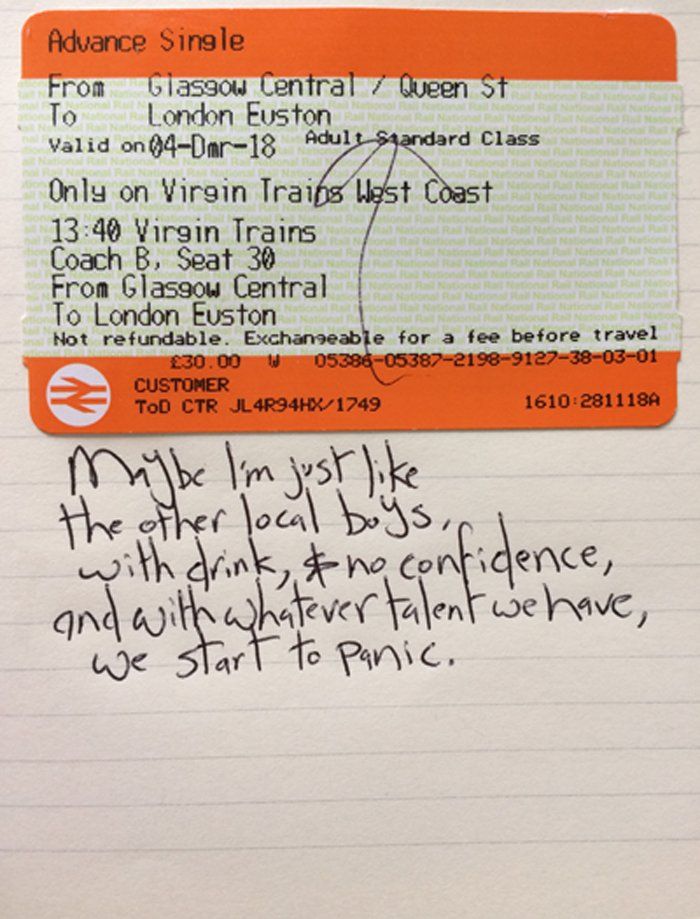 Advance Single
From Glasgow Central / Queen St
To London Euston
Valid on 04-Dmr-18 Adult Standard Class
Only on Virgin Trains West Coast
13:40 Virgin Trains
Coach B, Seat 30
From Glasgow Central
To London Euston
Not refundable. Exchangeable for a fee before travel
£30.00 W 05386-05387-2198-9127-38-03-01
CUSTOMER
ToD CTR JL4R94HX/1749 1610:281118A
Maybe I'm just like
the other local boys,
with drink, & no confidence,
and with whatever talent we have,
we start to panic.